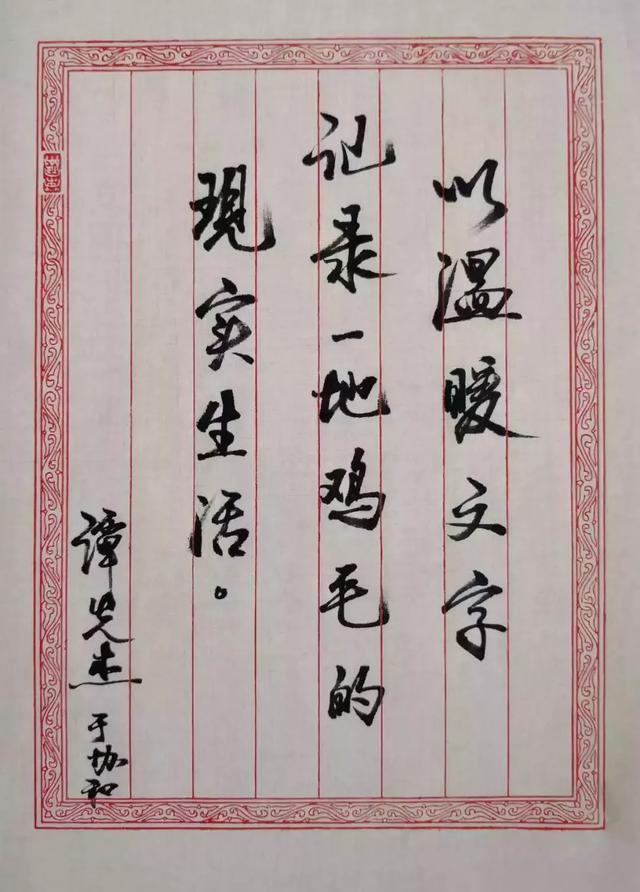 以温暖文字
记录一地鸡毛的
现实生活。
谭先杰 于协和